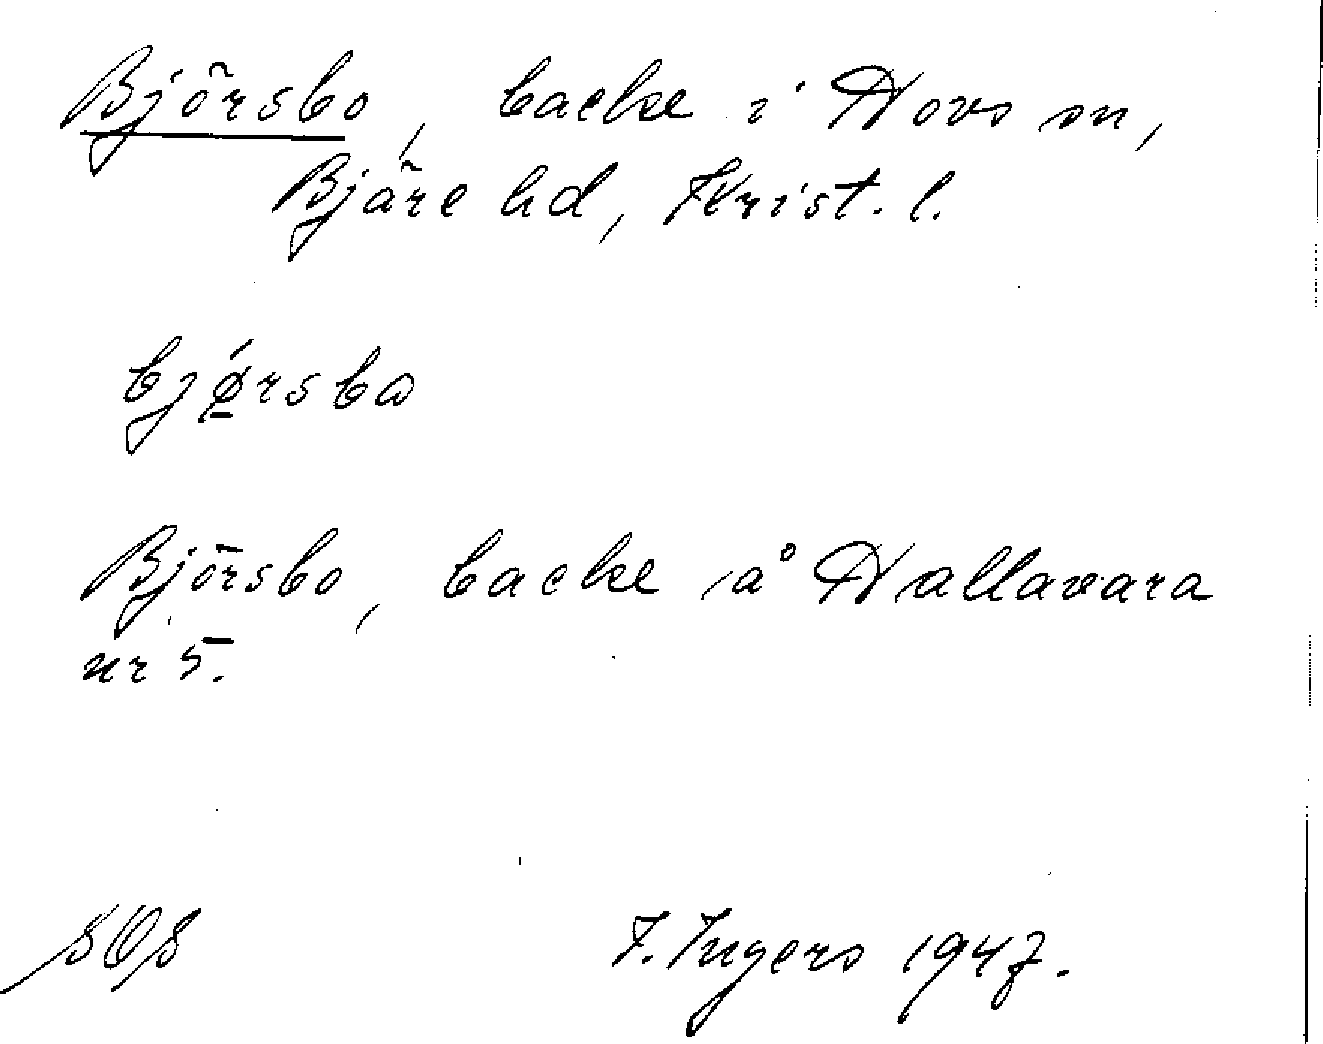 Björsbo, backe i Hovs sn,
Bjäre hd, Krist. l.
bjǿ̱rsbω
Björsbo, backe å Hallavara
nr 5.
I. Ingers 1947.